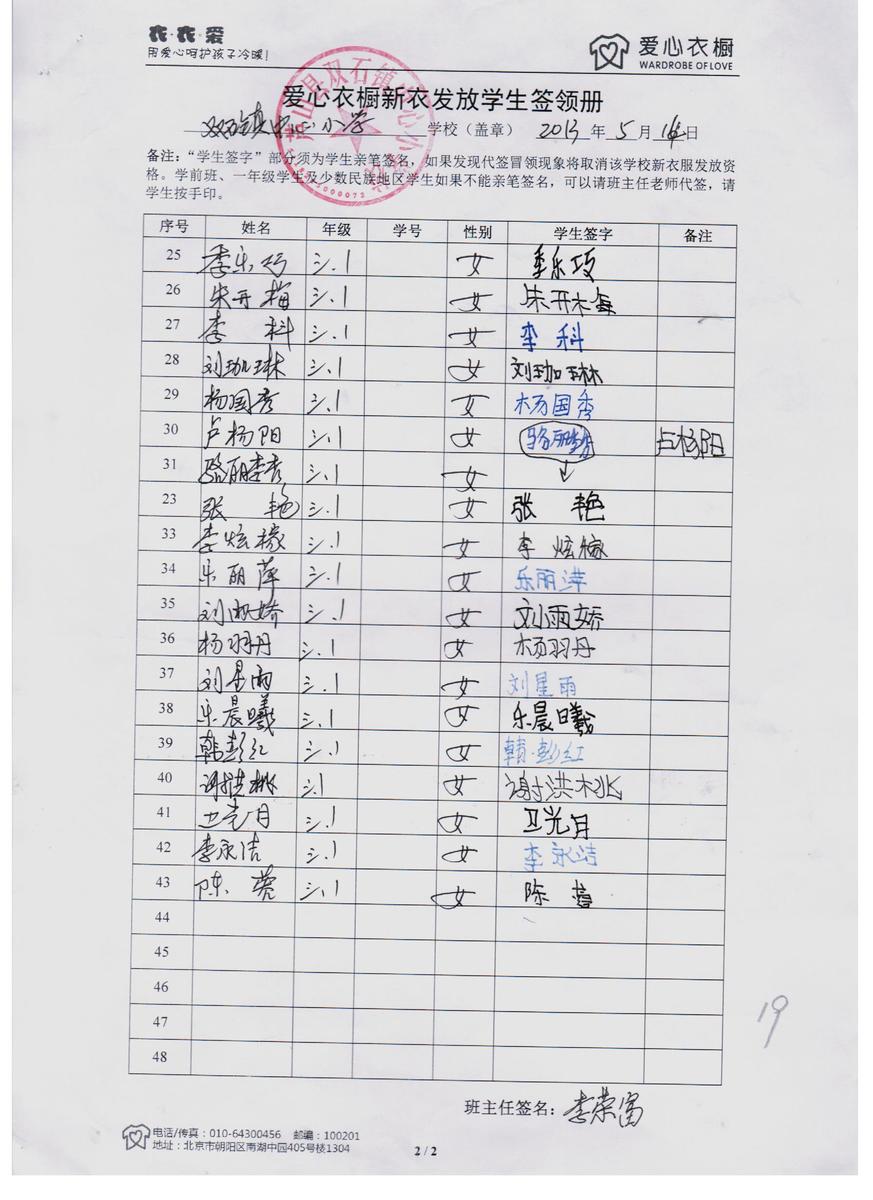 衣·衣·爱
用爱心呵护孩子冷暖!
爱心衣橱
WARDROBE OF LOVE
爱心衣橱新衣发放学生签领册
双石镇中心小学 学校（盖章） 2013 年 5 月 14 日
备注：“学生签字”部分须为学生亲笔签名，如果发现代签冒领现象将取消该学校新衣服发放资
格。学前班、一年级学生及少数民族地区学生如果不能亲笔签名，可以请班主任老师代签，请
学生按手印。
序号 姓名 年级 学号 性别 学生签字 备注
25 季乐巧 三.1 女 季乐巧
26 朱开梅 三.1 女 朱开梅
27 李科 三.1 女 李科
28 刘珈琳 三.1 女 刘珈琳
29 杨国秀 三.1 女 杨国秀
30 卢杨阳 三.1 女 卢杨阳
31 骆丽 三.1 女
23 张艳 三.1 女 张艳
33 李炫稼 三.1 女 李炫稼
34 乐丽萍 三.1 女 乐丽萍
35 刘雨娇 三.1 女 刘小雨娇
36 杨羽丹 三.1 女 杨羽丹
37 刘星雨 三.1 女 刘星雨
38 乐晨曦 三.1 女 乐晨曦
39 韩彭红 三.1 女 韩彭红
40 谢洪桃 三.1 女 谢洪桃
41 卫光月 三.1 女 卫光月
42 李永洁 三.1 女 李永洁
43 陈蓉 三.1 女 陈
44
45
46
47
48
19
班主任签名：李荣富
电话/传真：010-64300456 邮编：100201
地址：北京市朝阳区南湖中园405号楼1304
2 / 2